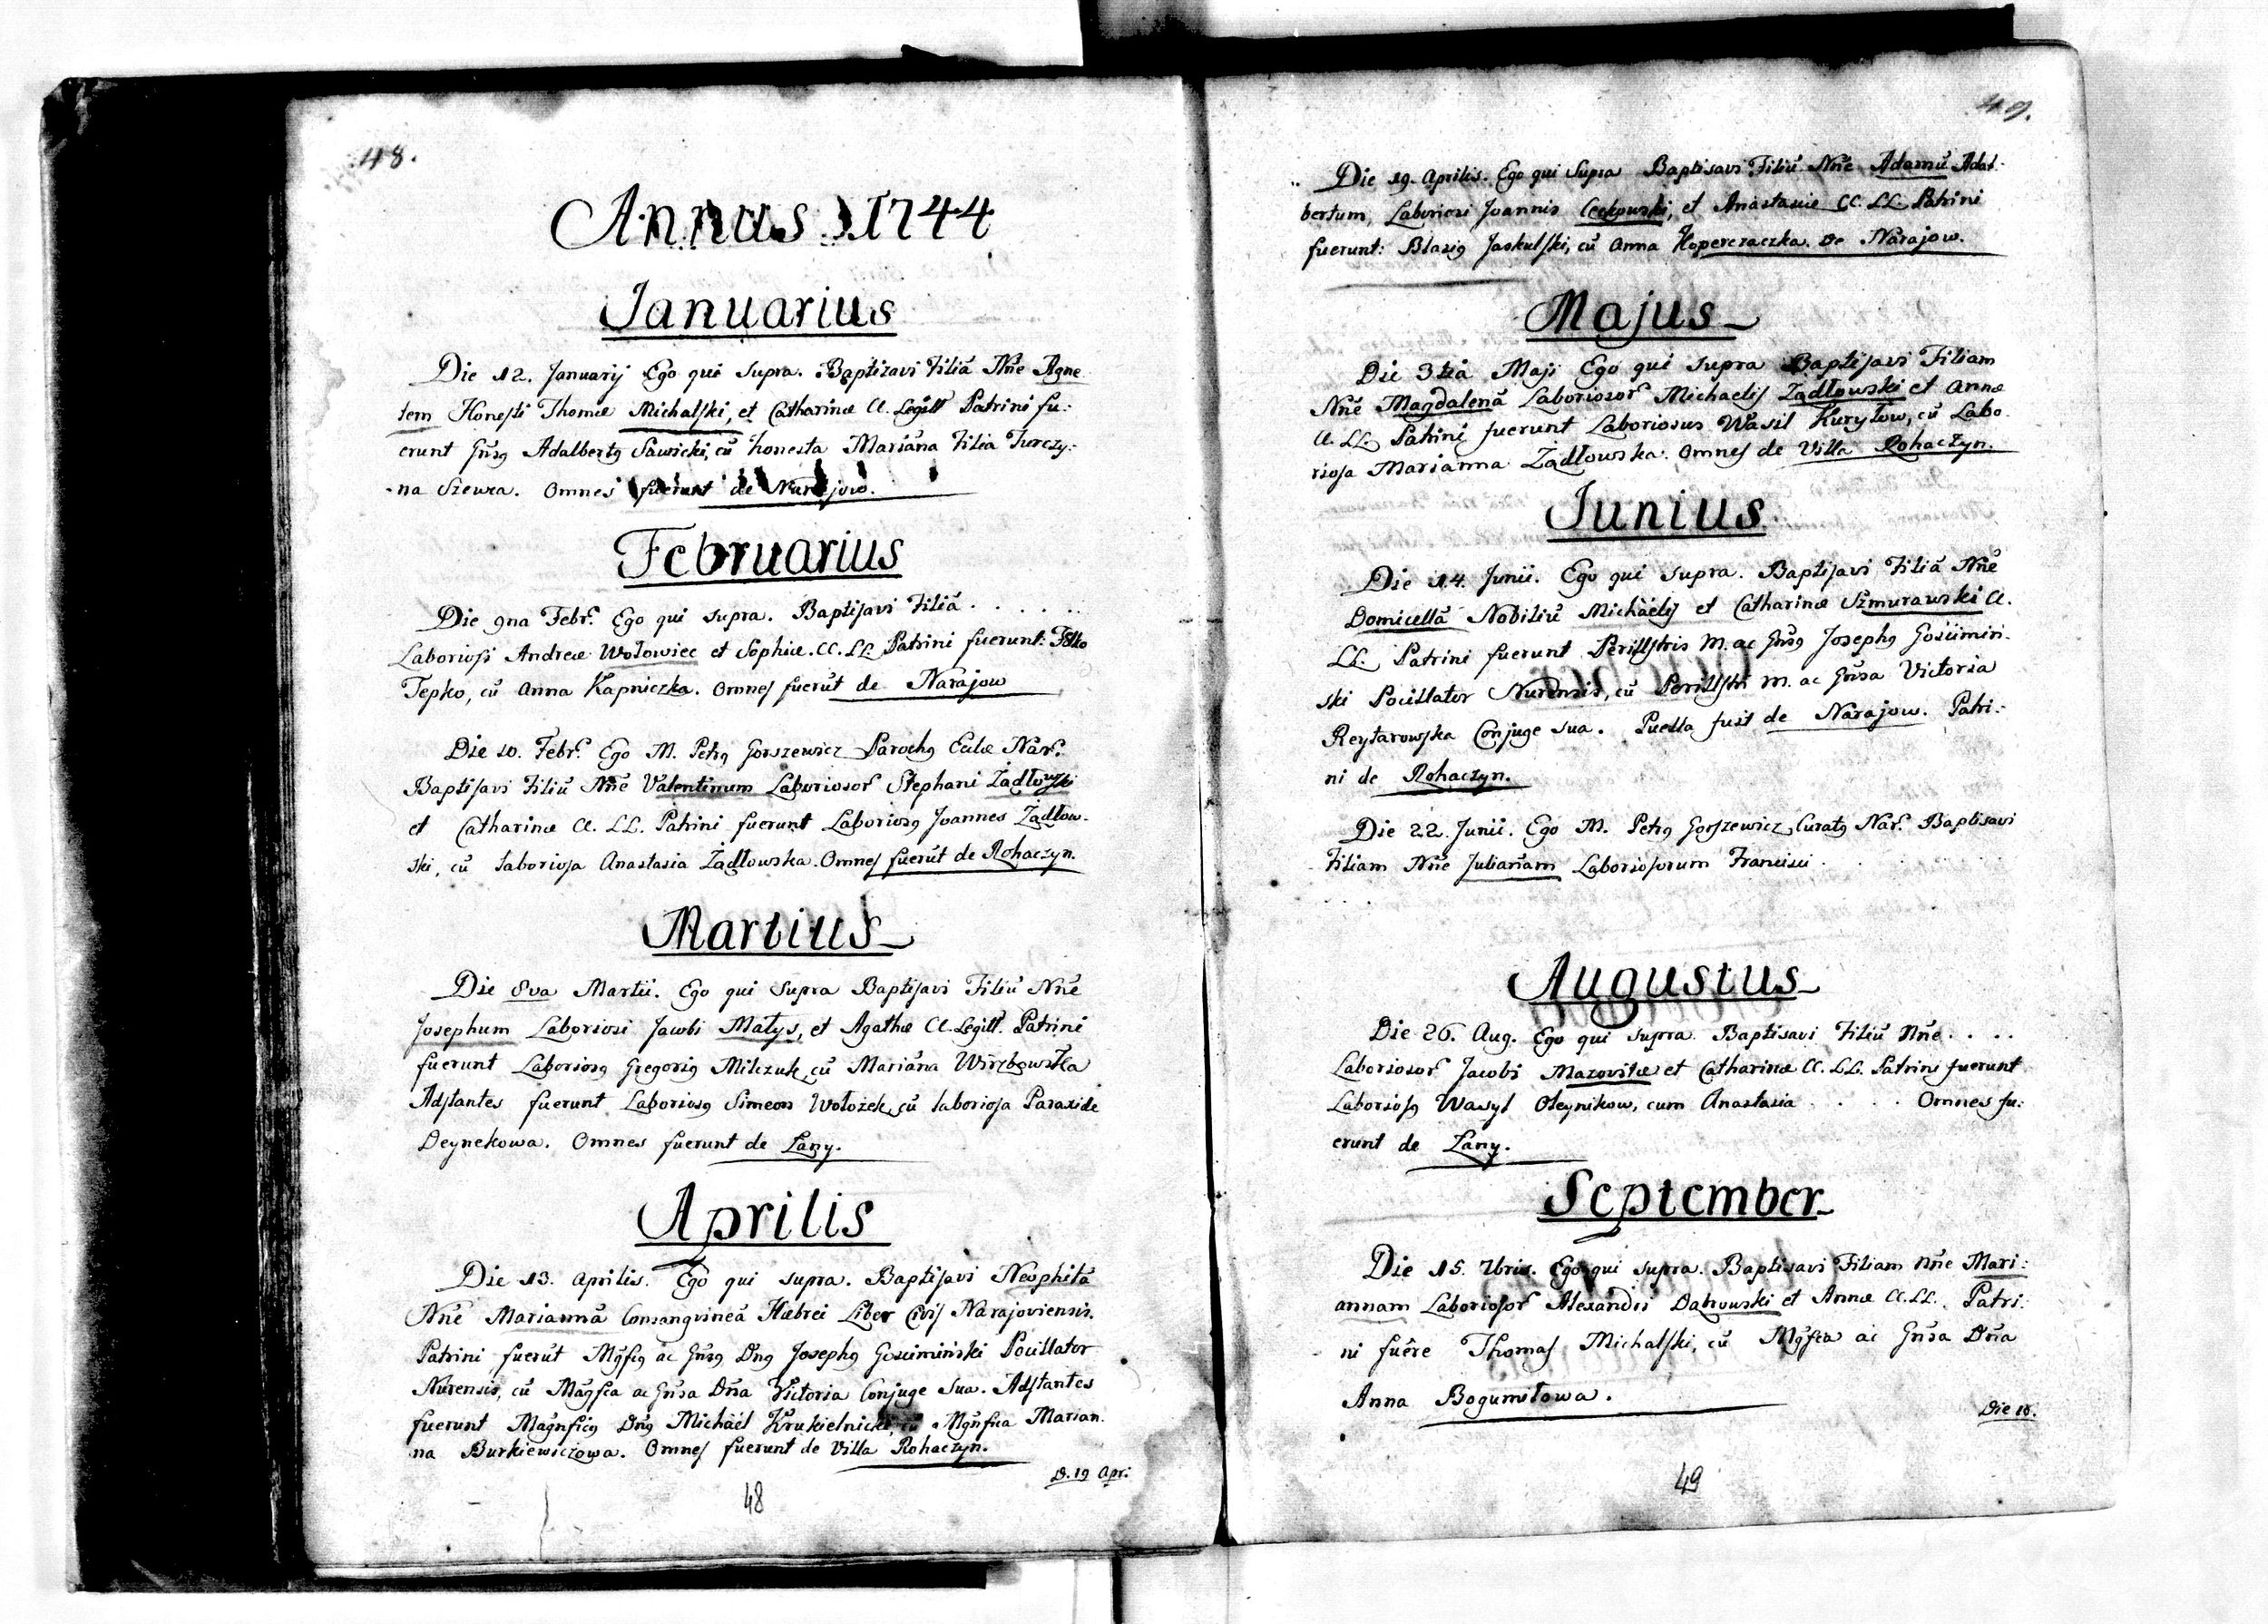 48.
Annus 1744
Januarius
Die 12. Januarij Ego qui supra. Baptizavi Filiã Nñe Agne
tem Honesti Thomæ Michalski, et Catharinæ CC. Legitt Patrini fu:
erunt Gñsq Adalbertq Sawicki, cũ honesta Mariãna Filia Turczy:
na Szewca. Omnes fuerunt de Narajow.
Februarius
Die 9na Febr. Ego qui supra. Baptisavi Filiã . . . . . .
Laboriosi Andreæ Wołowiec et Sophiæ. CC. LL. Patrini fuerunt:
Tepko, cũ Anna Kapniczka. Omnes fuerũt de Narajow
Die 10. Febr. Ego M. Petrq Gorszewicz Parochq Eccliæ Nar.
Baptisavi Filiũ Nñe Valentinum Laboriosor Stephani Żądłowski
et Catharinæ CC. LL. Patrini fuerunt Laboriosq Joannes Żądłow-
ski, cũ laboriosa Anastasia Żądłowska. Omnes fuerũt de Rohaczyn.
Martius
Die 8va Martii. Ego qui supra Baptisavi Filiũ Nñe
Josephum Laboriosi Jacobi Małys, et Agathæ CC. Legitt. Patrini
fuerunt Laboriosq Gregoriq Milczuk, cũ Mariãna Wirzbowska
Adstantes fuerunt Laboriosq Simeon Wołożek, cũ laboriosa Paraxide
Deynekowa. Omnes fuerunt de Łany.
Aprilis
Die 13. Aprilis. Ego qui supra. Baptisavi Neophitã
Nñe Mariannã Consangvineã Hæbrei Liber Civis Narajoviensis.
Patrini fuerũt Mgfcq ac Gñsq Dnq Josephq Gosciminski Pocillator
Nurensis, cũ Magfca ac Gñsa Dña Victoria Conjuge sua. Adstantes
fuerunt Magnficq Dnq Michaël Krukielnicki, cũ Mgnfica Marian-
na Burkiewiczowa. Omnes fuerunt de Villa Rohaczyn.
D. 19 Apr:
48
49.
Die 19. Aprilis. Ego qui supra Baptisavi Filiũ Nñe Adamũ Adal-
bertum, Laboriosi Joannis et Anastasiæ CC. LL. Patrini
fuerunt: Blasiq Jaskulski, cũ Anna Koperczaczka. de Narajow.
Majus
Die 3tiã Maji Ego qui supra Baptisavi Filiam
Nñe Magdalenã Laboriosor Michaelis Żądłowski et Annæ
CC. LL. Patrini fuerunt Laboriosus Wasil Kuryłow, cũ Labo
riosa Marianna Żądłowska. Omnes de Villa Rohaczyn.
Junius
Die 14. Junii. Ego qui supra. Baptisavi Filiã Nñe
Domicellã Nobiliũ Michaelis et Catharinæ Szmurawski CC.
LL. Patrini fuerunt Perillstris M. ac Gñsq Josephq Goscimin-
ski Pocillator Nurensis, cũ Perillstri M. ac Gñsa Victoria
Reytarowska Conjuge sua. Puella fuit de Narajow. Patri:
ni de Rohaczyn.
Die 22. Junii. Ego M. Petrq Gorszewicz Curatq Nar. Baptisavi
Filiam Nñe Julianam Laboriosorum Francisci . . . . . . .
Augustus
Die 26. Aug. Ego qui supra. Baptisavi Filiũ Nñe . . . .
Laboriosor Jacobi Mazovitæ et Catharinæ CC. LL. Patrini fuerunt
Laboriosq Wasyl Oleynikow, cum Anastasia . . . . Omnes fu:
erunt de Łany.
September
Die 15. 7bris. Ego qui supra. Baptisavi Filiam Nñe Mari:
annam Laboriosor Alexandri Dabrowski et Annæ CC. LL. Patri:
ni fuêre Thomas Michalski, cũ Mgfca ac Gñsa Dña
Anna Bogumiłowa.
Die 18.
49